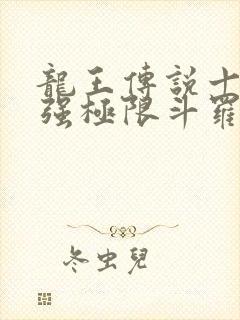 龍王傳説十
强極限斗羅
冬虫兒